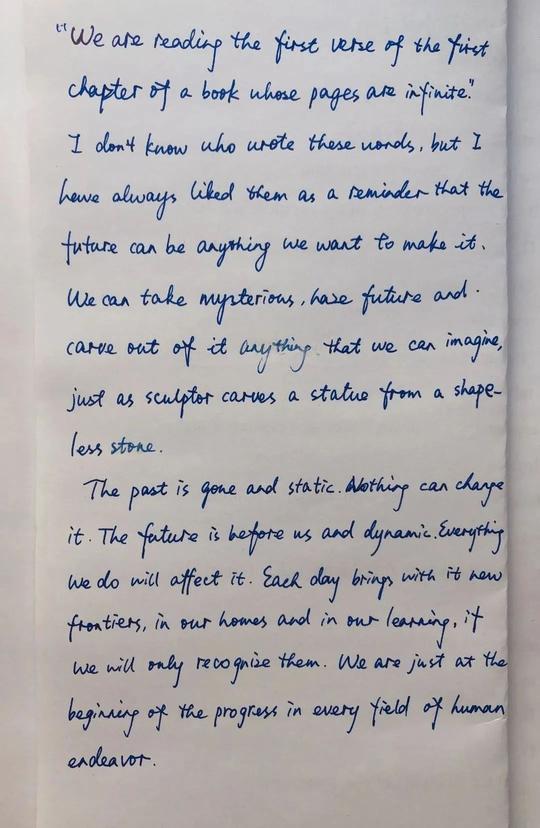 "We are reading the first verse of the first
chapter of a book whose pages are infinite."
I don't know who wrote these words, but I
have always liked them as a reminder that the
future can be anything we want to make it.
We can take mysterious, haze future and
carve out of it anything that we can imagine,
just as sculptor carves a statue from a shape-
less stone.
The past is gone and static. Nothing can change
it. The future is before us and dynamic. Everything
we do will affect it. Each day brings with it new
frontiers, in our homes and in our learning, if
we will only recognize them. We are just at the
beginning of the progress in every field of human
endeavor.